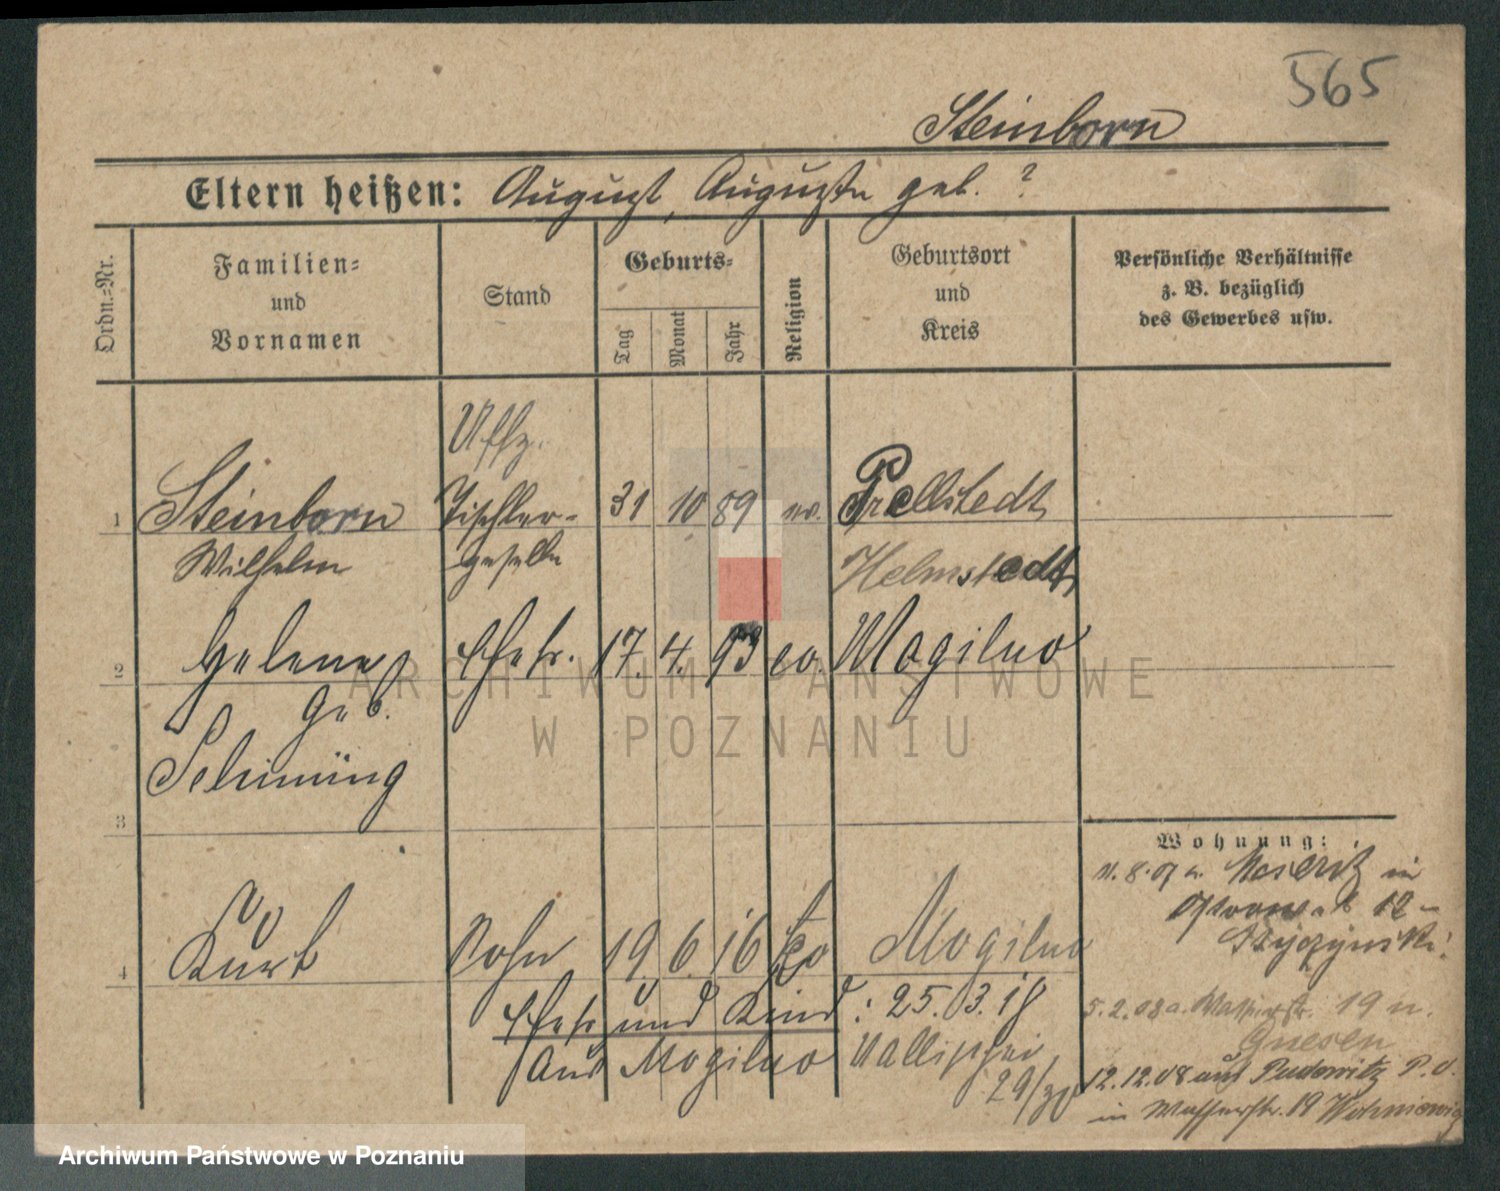 565
Steinborn
Eltern heißen: August, Auguste geb. ?
Ordn.-Nr.
Familien-
und
Vornamen
Stand
Geburts-
Tag
Monat
Jahr
Religion
Geburtsort
und
Kreis
Persönliche Verhältnisse
z. B. bezüglich
des Gewerbes usw.
Uffz.
1 Steinborn Tischler- 31 10 89 ev. Prellstedt
Wilhelm geselle Helmstedt
2 Helene Ehefr. 17. 4. 93 ev. Mogilno
geb.
Schiming
3
Wohnung:
Meseritz in
12-
4 Kurt Sohn 19 6 16 ev Mogilno
Ehefr und Kind: 25.3.18
aus Mogilno Wallischei
29/30
5.2.08 a. Wasserstr. 19 n.
Gnesen
12.12.08 aus Pudewitz P.O.
in Wasserstr. 19
ARCHIWUM PAŃSTWOWE
W POZNANIU
Archiwum Państwowe w Poznaniu